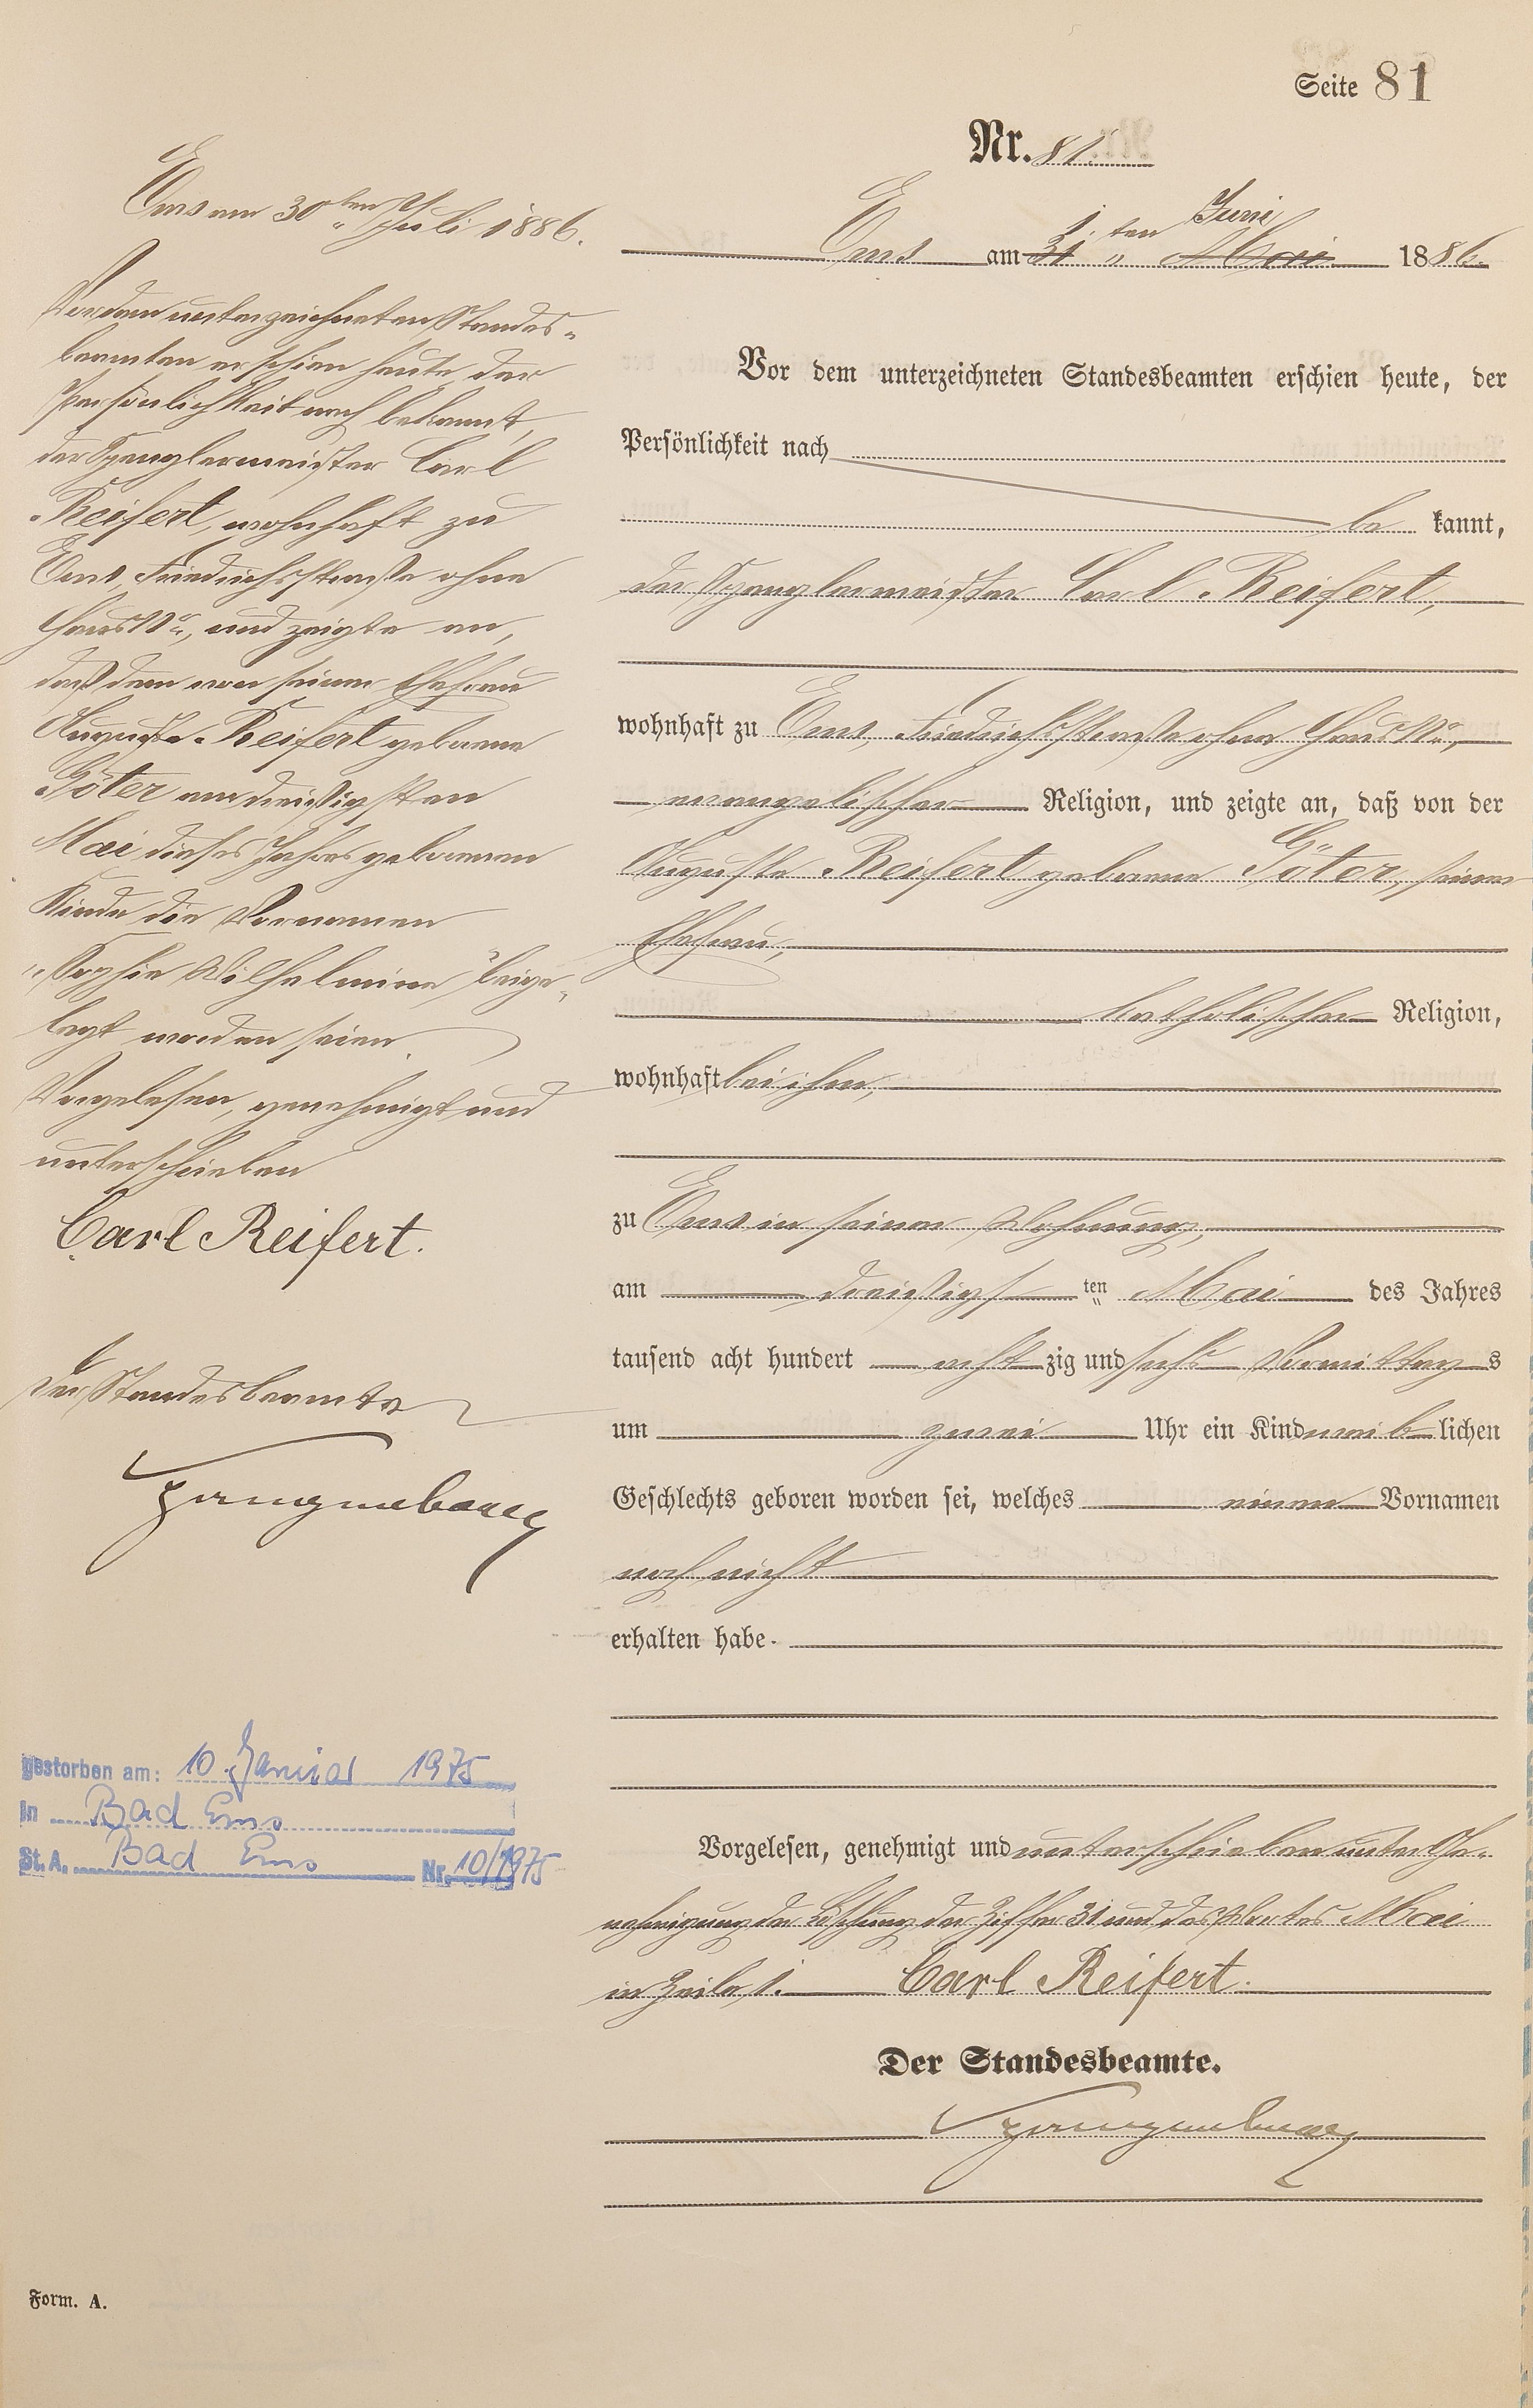 Seite 81
Nr. 81.
Ems am 30ten Juli 1886.
Vor dem unterzeichneten Standes-
beamten erschien heute, der
Persönlichkeit nach bekannt,
der Spenglermeister Carl
Reifert, wohnhaft zu
Ems, Friedrichsstraße ohne
Haus No., und zeigte an,
daß dem von seiner Ehefrau
Auguste Reifert geborene
Göter am dreißigsten
Mai dieses Jahres geborenen
Kinde die Vornamen
„Sophie Wilhelmine“ beige-
legt worden seien.
Vorgelesen, genehmigt und
unterschrieben
Carl Reifert.
Der Standesbeamte
gestorben am: 10. Januar 1975
in Bad Ems
St. A. Bad Ems Nr. 10/1975
1. ten Juni
Ems am 31 " Mai 1886.
Vor dem unterzeichneten Standesbeamten erschien heute, der
Persönlichkeit nach
be kannt,
der Spenglermeister Carl Reifert,
wohnhaft zu Ems, Friedrichsstraße ohne Haus No.,
evangelischer Religion, und zeigte an, daß von der
Auguste Reifert geborene Göter, seiner
Ehefrau,
katholischer Religion,
wohnhaft bei ihm,
zu Ems in seiner Wohnung,
am dreißigsten Mai des Jahres
tausend acht hundert acht zig und sechs Vormittags
um zwei Uhr ein Kind weiblichen
Geschlechts geboren worden sei, welches einen Vornamen
noch nicht
erhalten habe.
Vorgelesen, genehmigt und unterschrieben unter Ge-
nehmigung der Löschung der Ziffer 31 und des Wortes Mai
in Zeile 1. Carl Reifert.
Der Standesbeamte.
Form. A.